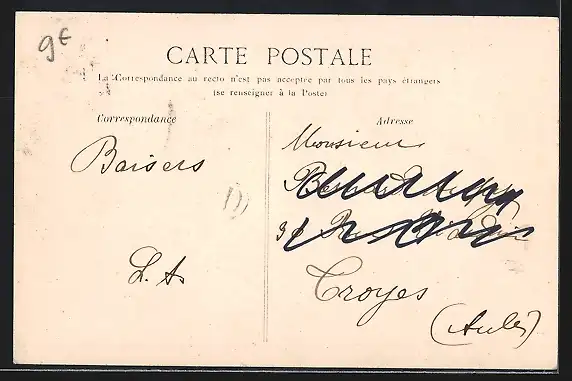 9€
CARTE POSTALE
La Correspondance au recto n'est pas acceptée par tous les pays étrangers
(se renseigner à la Poste)
Correspondance
Baisers
L. A.
Adresse
Monsieur
Troyes
(Aube)